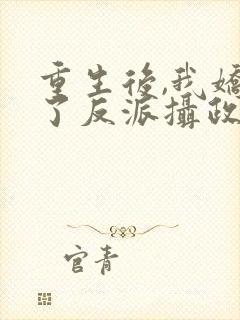 重生后,我嬌
了反派攝政
官青